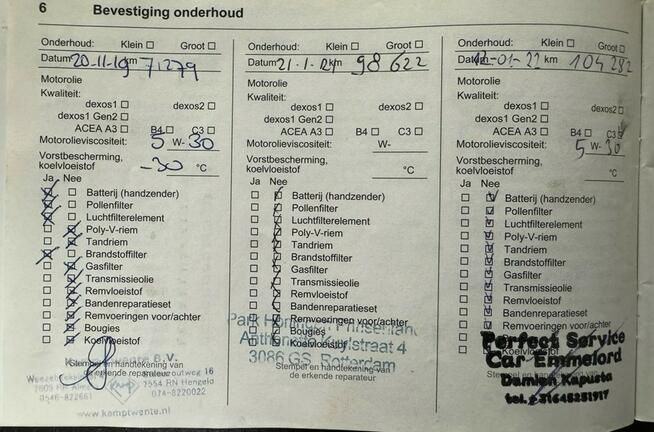 6 Bevestiging onderhoud
Onderhoud: Klein ☐ Groot ☐
Datum 20-11-19 km 71279
Motorolie
Kwaliteit:
dexos1 ☐ dexos2 ☐
dexos1 Gen2 ☐
ACEA A3 ☐ B4 ☐ C3 ☐
Motorolieviscositeit: 5 W- 30
Vorstbescherming,
koelvloeistof -30 °C
Ja Nee
Batterij (handzender)
Pollenfilter
Luchtfilterelement
Poly-V-riem
Tandriem
Brandstoffilter
Gasfilter
Transmissieolie
Remvloeistof
Bandenreparatieset
Remvoeringen voor/achter
Bougies
Koelvloeistof
B.V.
Stempel en handtekening van
de erkende reparateur
16
7554 RN Hengelo
0546-822661 074-8220022
www.kamptwente.nl
Onderhoud: Klein ☐ Groot ☐
Datum 21-1-21 km 98622
Motorolie
Kwaliteit:
dexos1 ☐ dexos2 ☐
dexos1 Gen2 ☐
ACEA A3 ☐ B4 ☐ C3 ☐
Motorolieviscositeit: W-
Vorstbescherming,
koelvloeistof °C
Ja Nee
Batterij (handzender)
Pollenfilter
Luchtfilterelement
Poly-V-riem
Tandriem
Brandstoffilter
Gasfilter
Transmissieolie
Remvloeistof
Bandenreparatieset
Remvoeringen voor/achter
Bougies
Koelvloeistof
straat 4
3086 GS Rotterdam
Stempel en handtekening van
de erkende reparateur
Onderhoud: Klein ☐ Groot ☐
Datum 12-01-22 km 104282
Motorolie
Kwaliteit:
dexos1 ☐ dexos2 ☐
dexos1 Gen2 ☐
ACEA A3 ☐ B4 ☐ C3 ☑
Motorolieviscositeit: 5 W- 30
Vorstbescherming,
koelvloeistof °C
Ja Nee
Batterij (handzender)
Pollenfilter
Luchtfilterelement
Poly-V-riem
Tandriem
Brandstoffilter
Gasfilter
Transmissieolie
Remvloeistof
Bandenreparatieset
Remvoeringen voor/achter
Perfect Service
Car Emmeloord
Damian Kapusta
tel. +31645251917